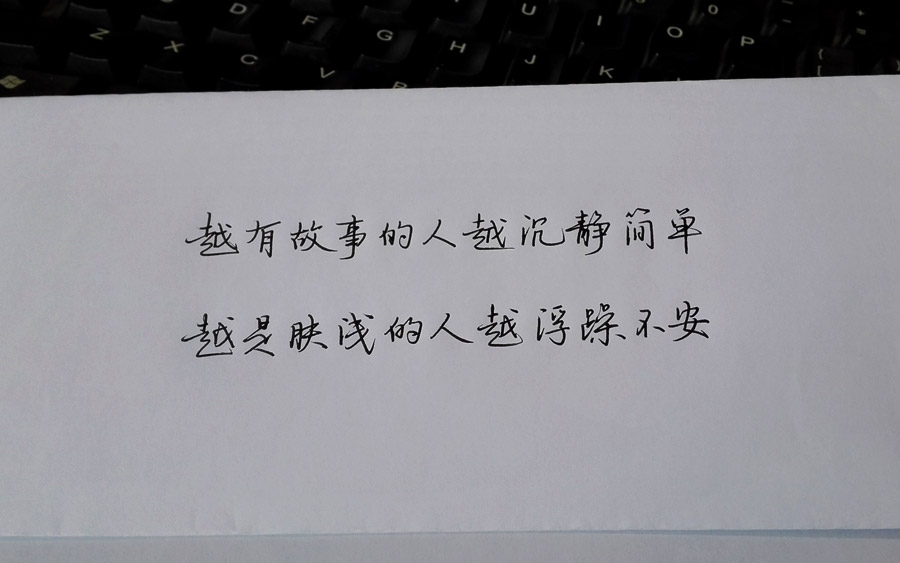 Z X C V
D F G H J K
U I O P
越有故事的人越沉静简单
越是肤浅的人越浮躁不安